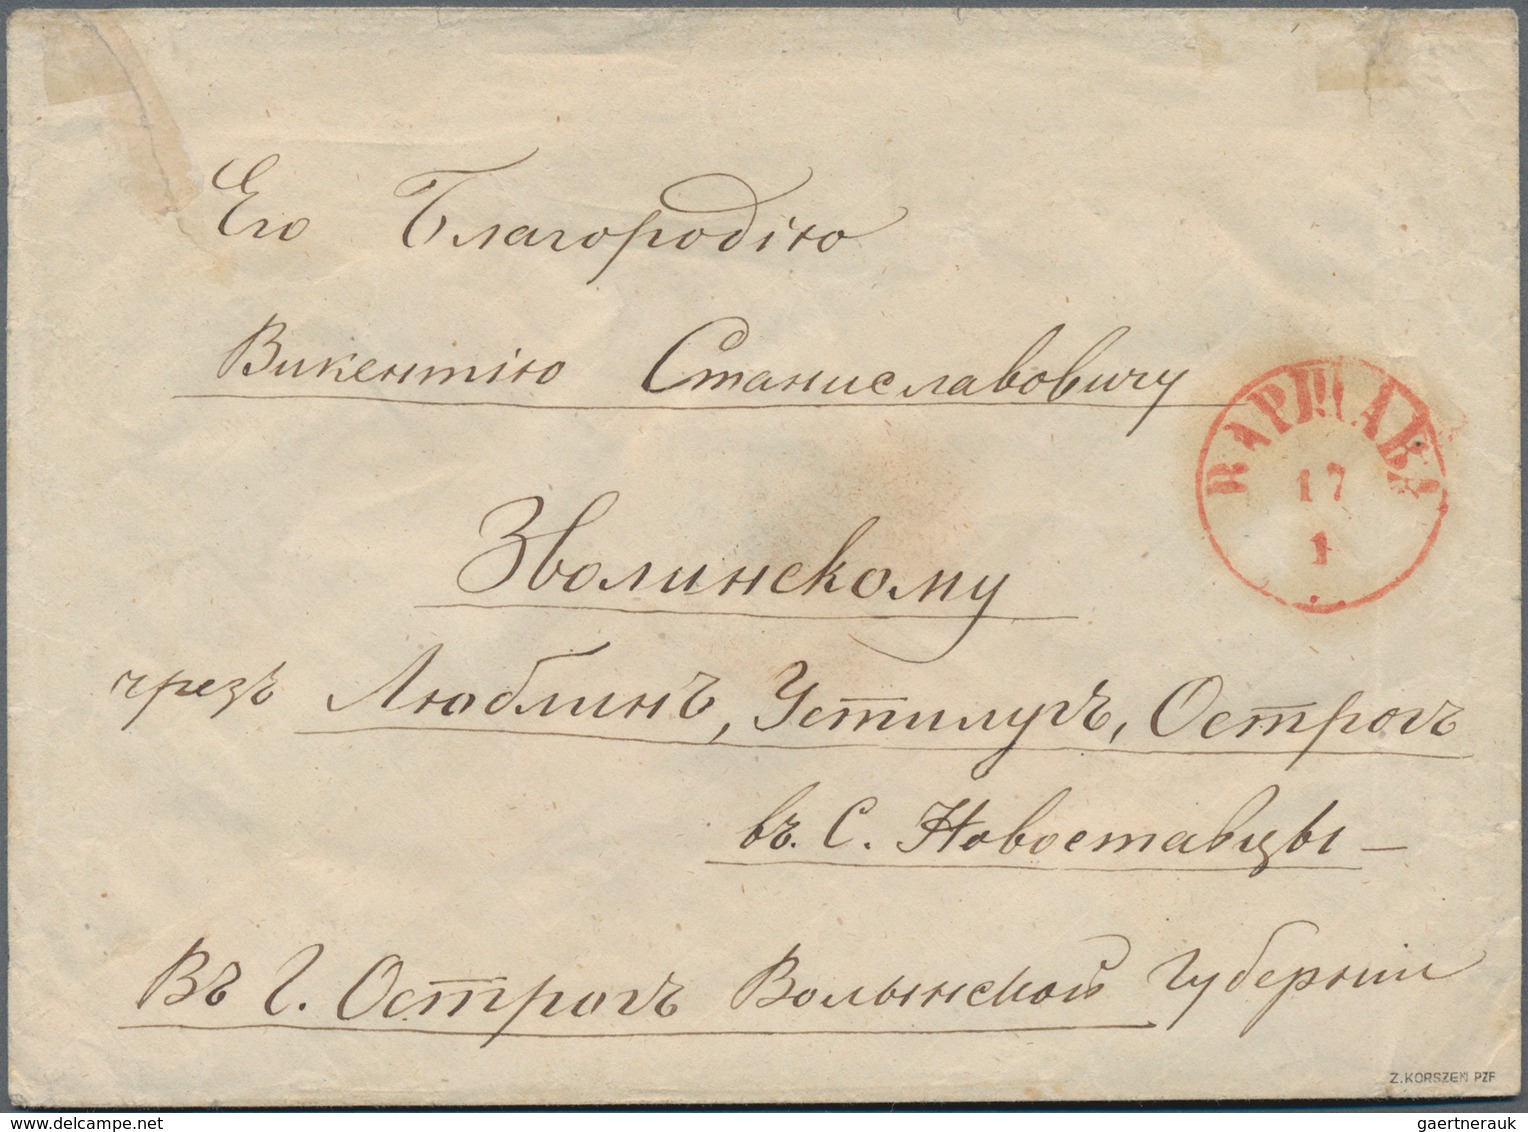 Его Благородію
Викентію Станиславовичу
ВАРШАВА
17
1
Зволинскому
чрезъ Люблинъ, Устилугъ, Острогъ
въ С. Новоставцы —
Въ Г. Острогъ Волынской Губерніи
Z. KORSZEŃ PZF
delcampe.net
gaertnerauk